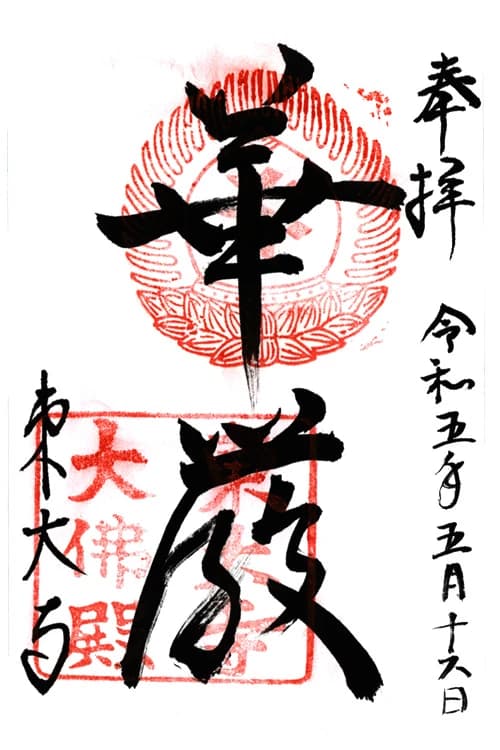 奉拝
令和五年五月十六日
華厳
東大寺
東大寺
大佛殿